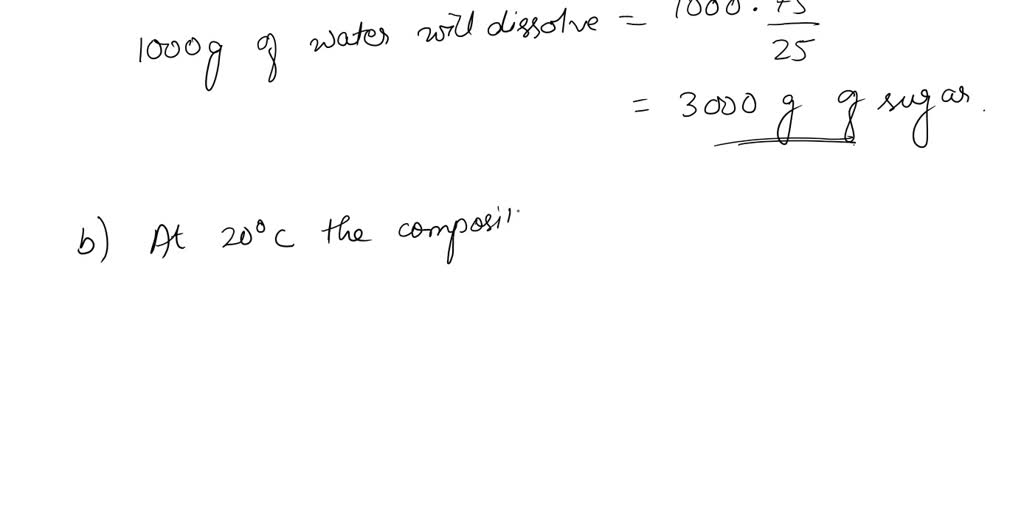 1000g of water will dissolve = 1000 · 75/25
= 3000 g of sugar.
b) At 20°C the composi